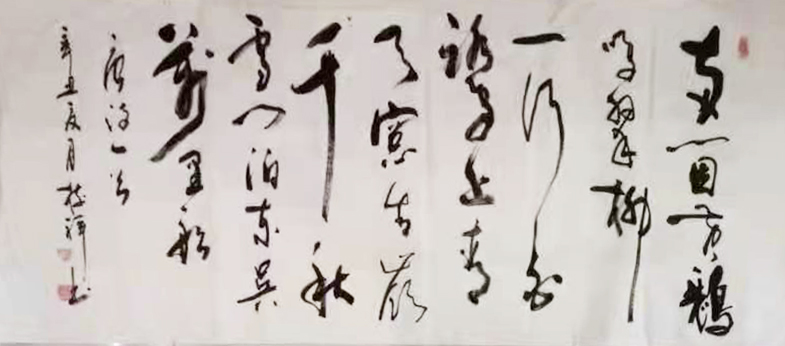 两個黄鹂
鸣翠柳
一行白
鹭上青
天窗含西岭
千秋
雪门泊东吴
萬里船
唐诗一首
辛丑夏月 书